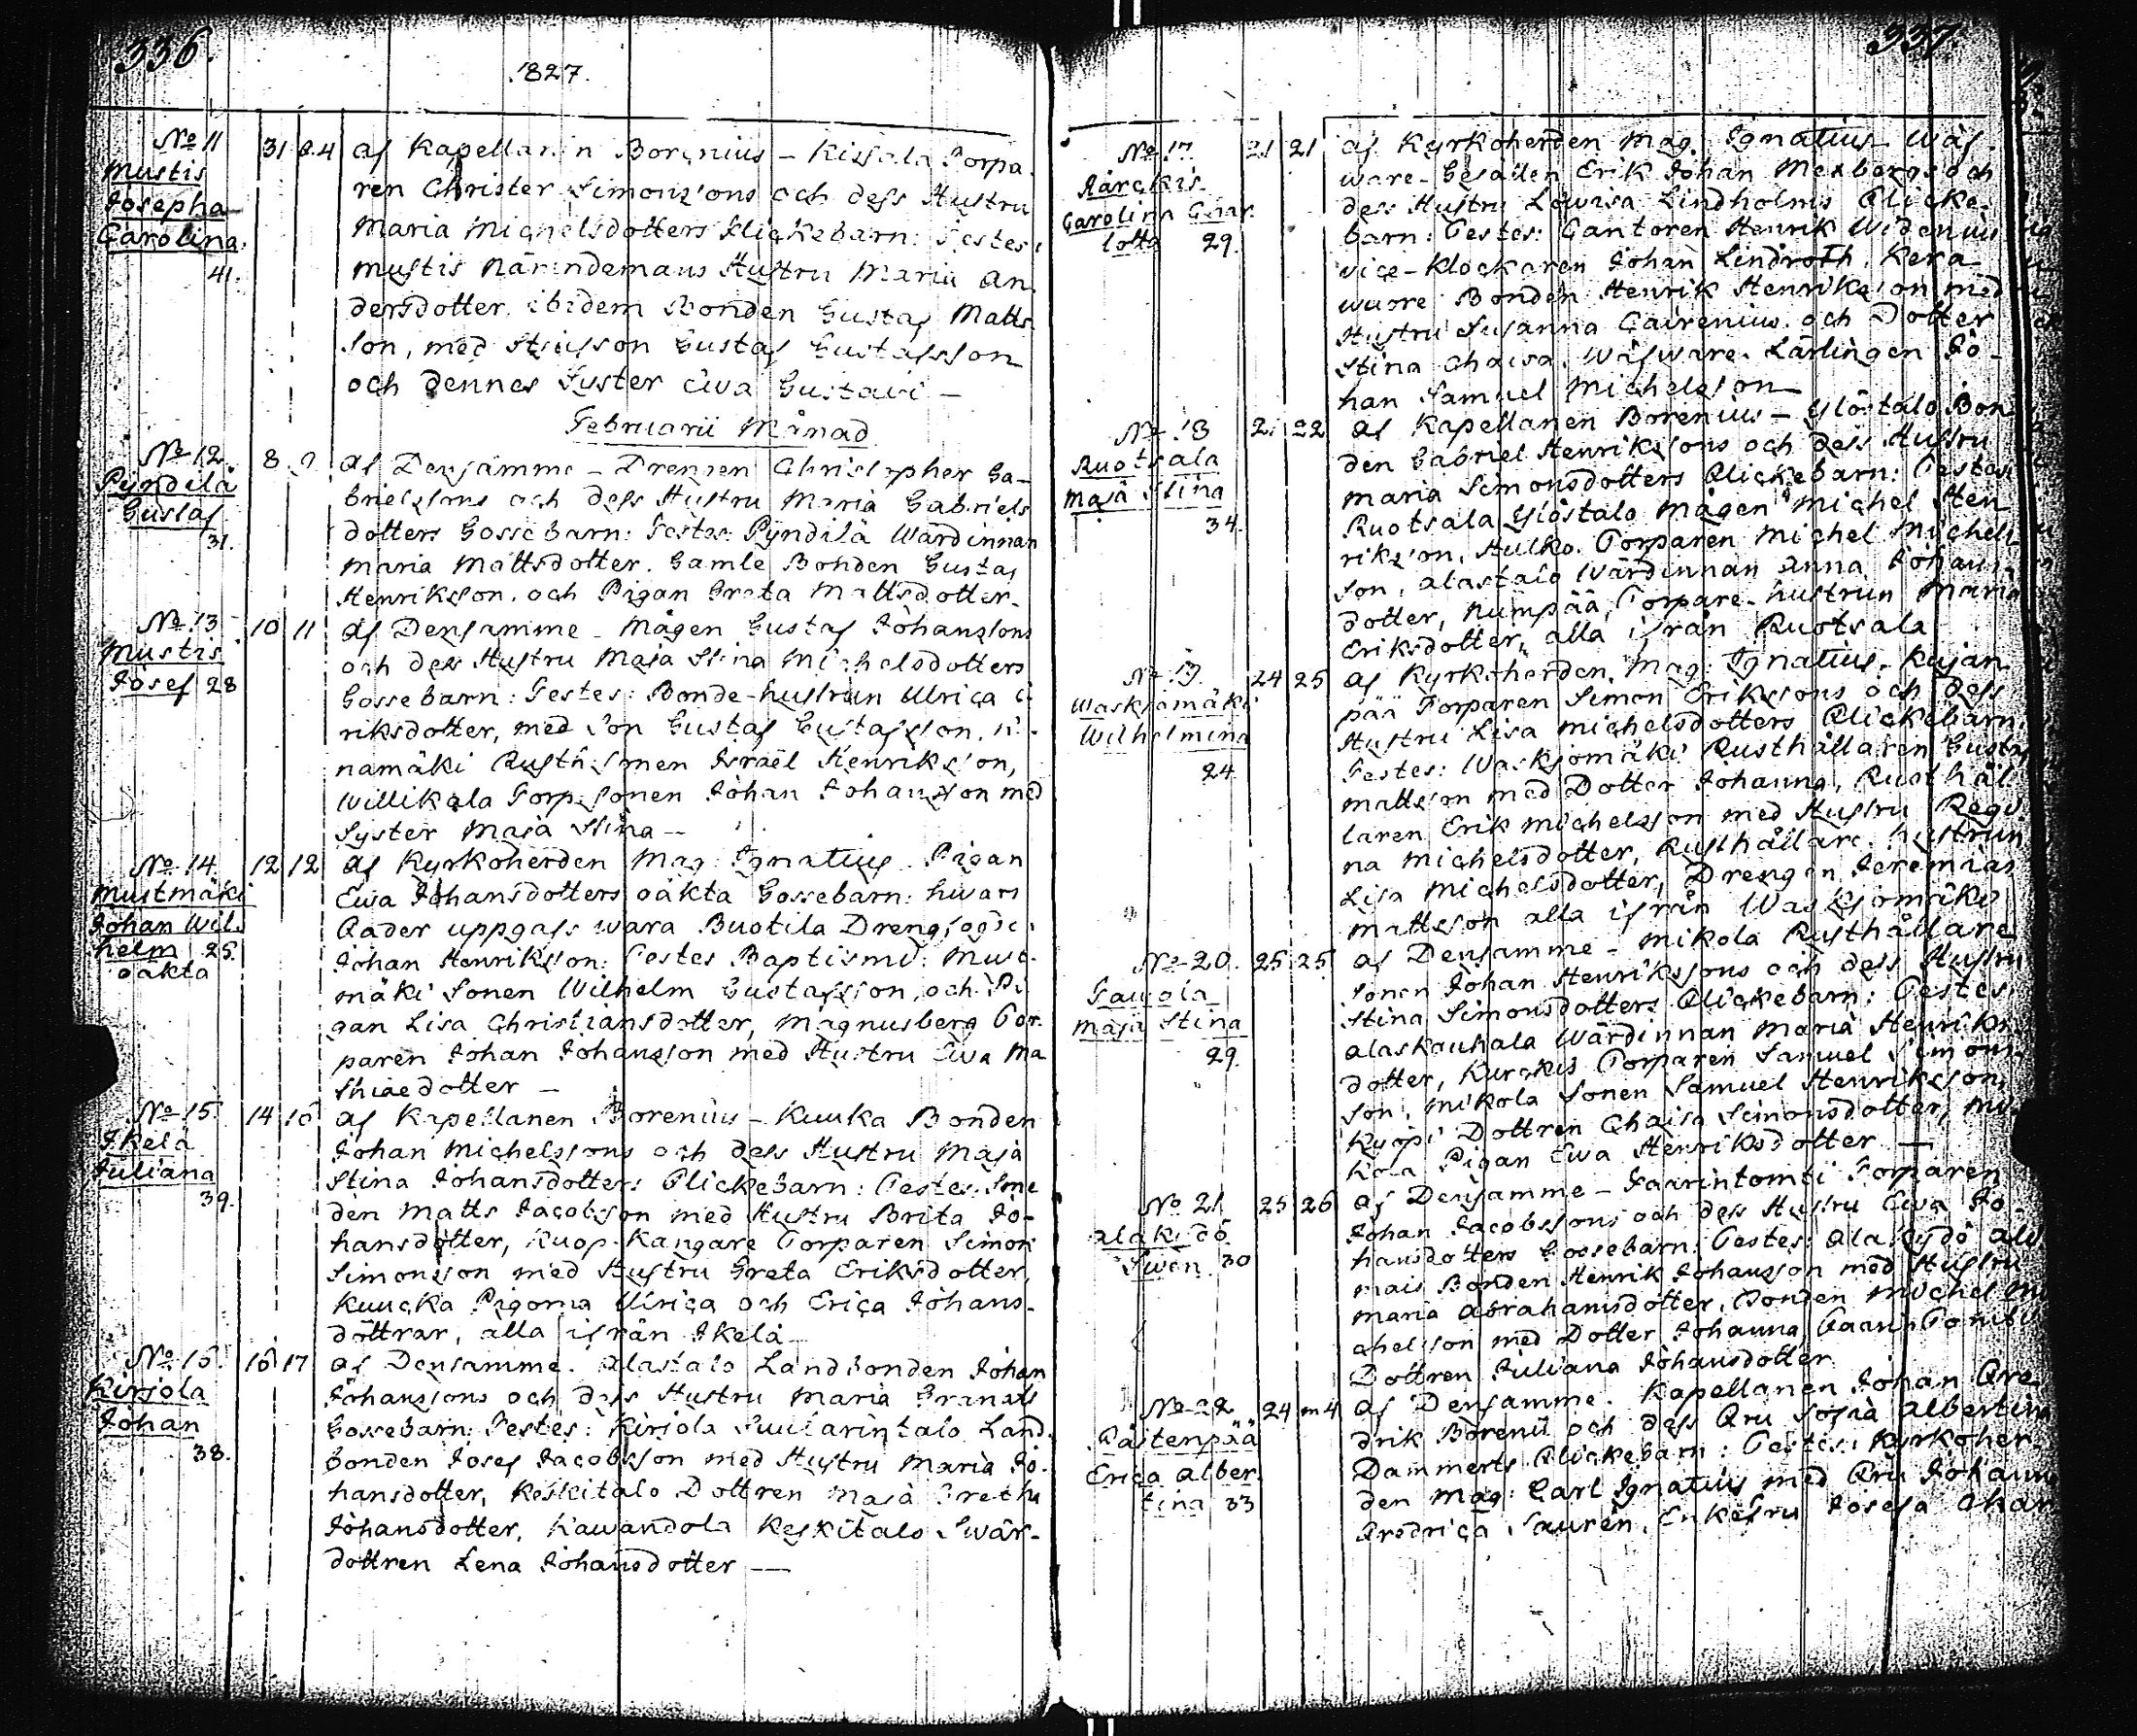 336.
1827.
No 11 31 2.4 af Kapellanen Borenius – Kissala Torpa
Mustis ren Christer Simonssons och dess Hustru
Josepha Maria Michelsdotters Flickebarn: Testes:
Carolina. Mustis Nämndemans Hustru Maria An
41. dersdotter, ibidem Bonden Gustaf Matts
son, med Styfson Gustaf Gustafsson
och dennes Syster Ewa Gustavi –
Februarii Månad
No 12. 8 af Densamme – Drengen Christopher Ga-
Pyndilä brielssons och dess Hustru Maria Gabriels
Gustaf dotters Gossebarn: Testes: Pyndilä Wärdinnan
31. Maria Mattsdotter. Gamle Bonden Gustaf
Henriksson. och Pigan Greta Mattsdotter.
No 13 10 11 af Densamme – Mågen Gustaf Johanssons
Mustis och dess Hustru Maja Stina Michelsdotters
Josef 28 Gossebarn: Testes: Bonde-hustrun Ulrica E
riksdotter, med Son Gustaf Gustafsson,
namäki Israël Henriksson,
Willikala Torp. Sonen Johan Johansson med
Syster Maja Stina –
No 14. 12 12 af Kyrkoherden Mag. Ignatius. Pigan
Mustmäki Ewa Johansdotters oäkta Gossebarn: hwars
Johan Wil Fader uppgafs wara Buotila Dreng
helm 25. Johan Henriksson: Testes Baptismi: Must
oäkta mäki Sonen Wilhelm Gustafsson, och Pi
gan Lisa Christiansdotter, Magnusberg Tor-
paren Johan Johansson med Hustru Ewa Ma
thiaedotter –
No 15. 14 16 af Kapellanen Borenius – Kuuka Bonden
Ikelä Johan Michelssons och dess Hustru Maja
Juliana Stina Johansdotters Flickebarn: Testes:
39. den Matts Jacobsson med Hustru Brita Jo-
hansdotter, Kuop. Kangare Torparen Simon
Simonsson med Hustru Greta Eriksdotter,
Kuucka Pigorna Ulrica och Erica Johans-
döttrar, alla ifrån Ikelä –
No 16. 16 17 af Densamme. Alastalo Landbonden Johan
Kirjola Johanssons och dess Hustru Maria Granats
Johan Gossebarn: Testes: Kirjola Suutarintalo Land-
38. bonden Josef Jacobsson med Hustru Maria Jo-
hansdotter, Keskitalo Dottren Maja Gretha
Johansdotter, Kawandola Keskitalo Swär-
dottren Lena Johansdotter –
337.
No 17. 21 21 af Kyrkoherden Mag. Ignatius Wäf
ware-Gesällen Erik Johan Mexbergs och
Carolina Char dess Hustru Lowisa Lindholms Flicke-
lotta 29. barn: Testes: Cantoren Henrik Widenius
vice-Klockaren Johan Lindroth. Kera
wuore Bonden Henrik Henriksson med
Hustru Susanna Cairenius och Dotter
Stina Chaisa, Wäfware-Lärlingen Jo-
han Samuel Michelsson –
No 18 21 22 af Kapellanen Borenius – Ylöstalo Bon
Ruotsala den Gabriel Henrikssons och dess Hustru
Maja Stina Maria Simonsdotters Flickebarn: Testes:
34. Ruotsala Ylöstalo Mågen Michel Hen
riksson, Hulko. Torparen Michel Michels
son, Alastalo Wärdinnan Anna Johans
dotter, Numpää, Torpare-hustrun Maria
Eriksdotter, alla ifrån Ruotsala
No 19. 24 25 af Kyrkoherden Mag. Ignatius. Kujan
Waskjomäki pää Torparen Simon Erikssons och dess
Wilhelmina Hustru Lisa Michelsdotters Flickebarn
24. Testes: Waskjomäki Rusthållaren Gustaf
Mattsson med Dotter Johanna, Rusthål
laren Erik Michelsson med Hustru Regi
na Michelsdotter, Rusthållare hustrun
Lisa Michelsdotter, Drengen Jeremias
Mattsson alla ifrån Waskjomäki
No 20. 25 25 af Densamme – Mikola Rusthållare
sonen Johan Henrikssons och dess Hustru
Maja Stina Stina Simonsdotters Flickebarn: Testes:
29. Alaskauhala Wärdinnan Maria Henriks
dotter, Kurckis Torparen Samuel Simons
son, Mikola Sonen Samuel Henriksson
Dottren Chaisa Simonsdotter, Mi
kola Pigan Ewa Henriksdotter –
No 21 25 26 af Densamme – Torparen
Johan Jacobssons och dess Hustru Ewa Jo-
Swen. 30 hansdotters Gossebarn: Testes:
Bonden Henrik Johansson med Hustru
Maria Abrahamsdotter, Bonden Michel Mi
chelsson med Dotter Johanna,
Dottren Juliana Johansdotter
No 22 24 m4 af Densamme. Kapellanen Johan Fre
Paistenpää drik Borenii och dess Fru Sofia Albertina
Erica Alber Dammerts Flickebarn: Testes: Kyrkoher-
tina 33 den Mag. Carl Ignatius med Fru Johanna
Fredrica Saurén, Enkefru Josefa